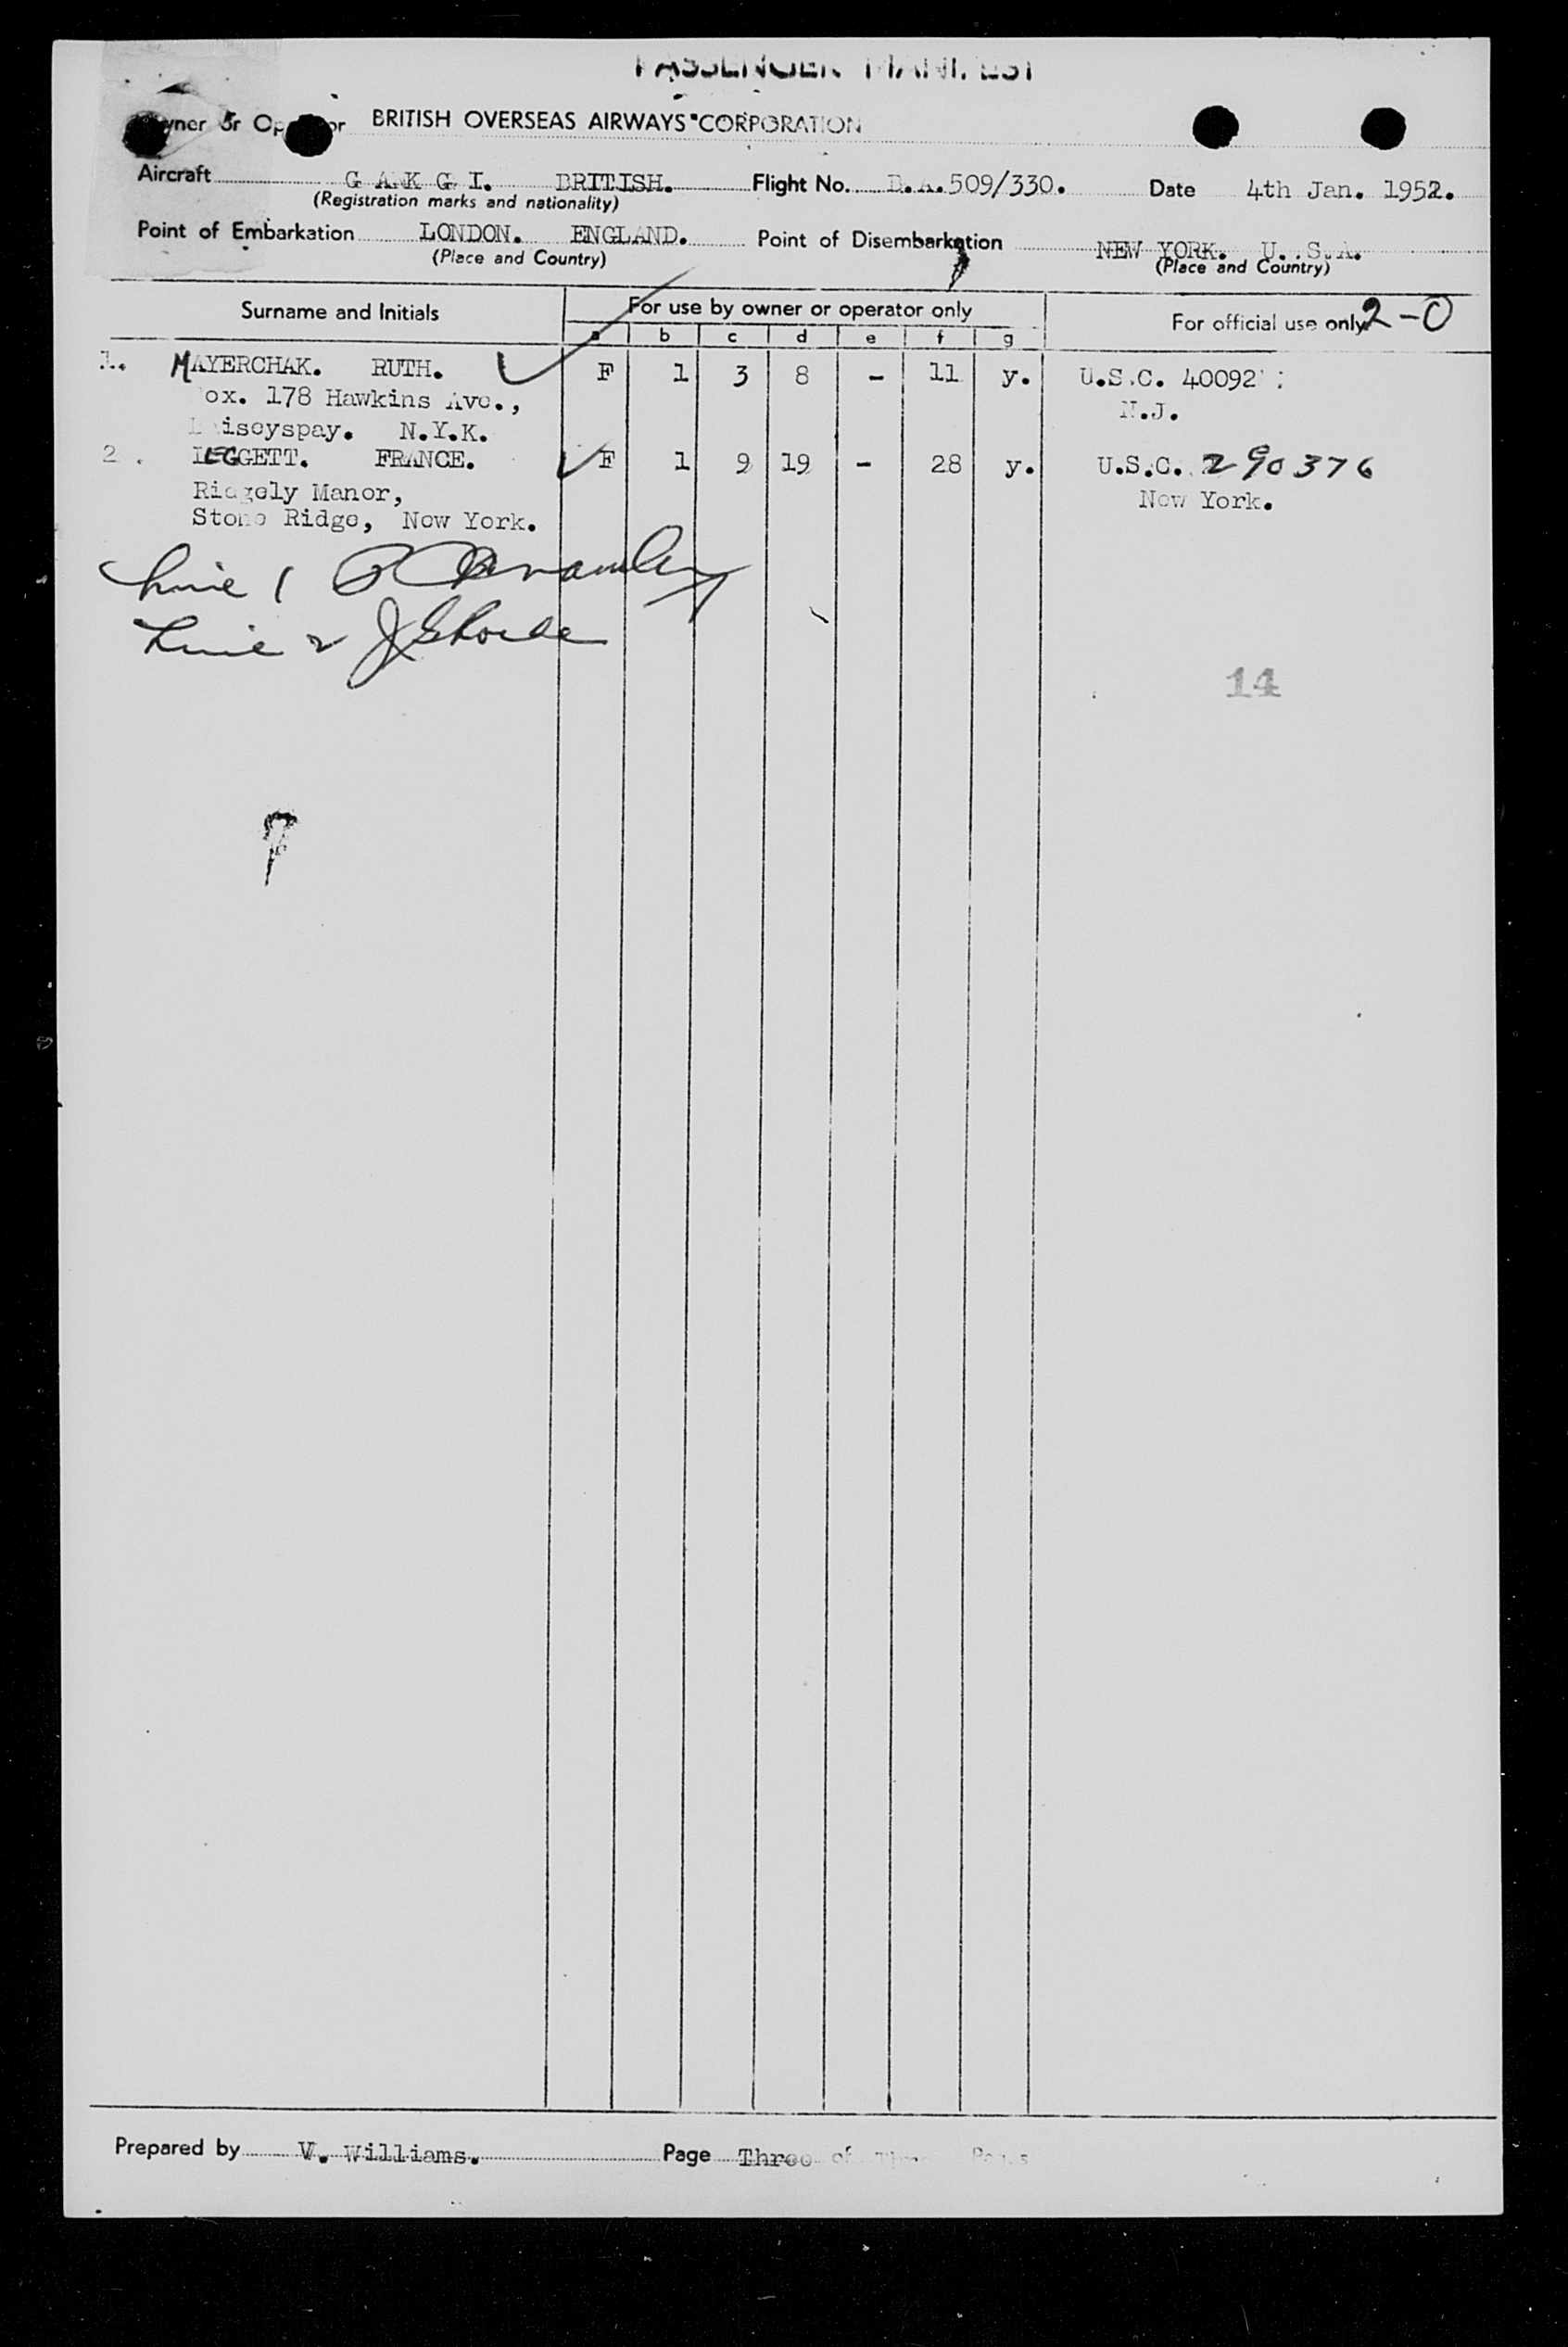 PASSENGER MANIFEST
Owner or Operator BRITISH OVERSEAS AIRWAYS CORPORATION
Aircraft G A K G I. BRITISH. Flight No. B.A.509/330. Date 4th Jan. 1952.
(Registration marks and nationality)
Point of Embarkation LONDON. ENGLAND. Point of Disembarkation NEW YORK. U.S.A.
(Place and Country) (Place and Country)
Surname and Initials For use by owner or operator only For official use only 2-0
a b c d e f g
1. MAYERCHAK. RUTH. F 1 3 8 - 11 y. U.S.C. 40092
ox. 178 Hawkins Ave., N.J.
N.Y.K.
2. LEGGETT. FRANCE. F 1 9 19 - 28 y. U.S.C. 290376
Ridgely Manor, New York.
Stone Ridge, New York.
Line 1
Line 2
14
Prepared by V. Williams. Page Three of Three Pages